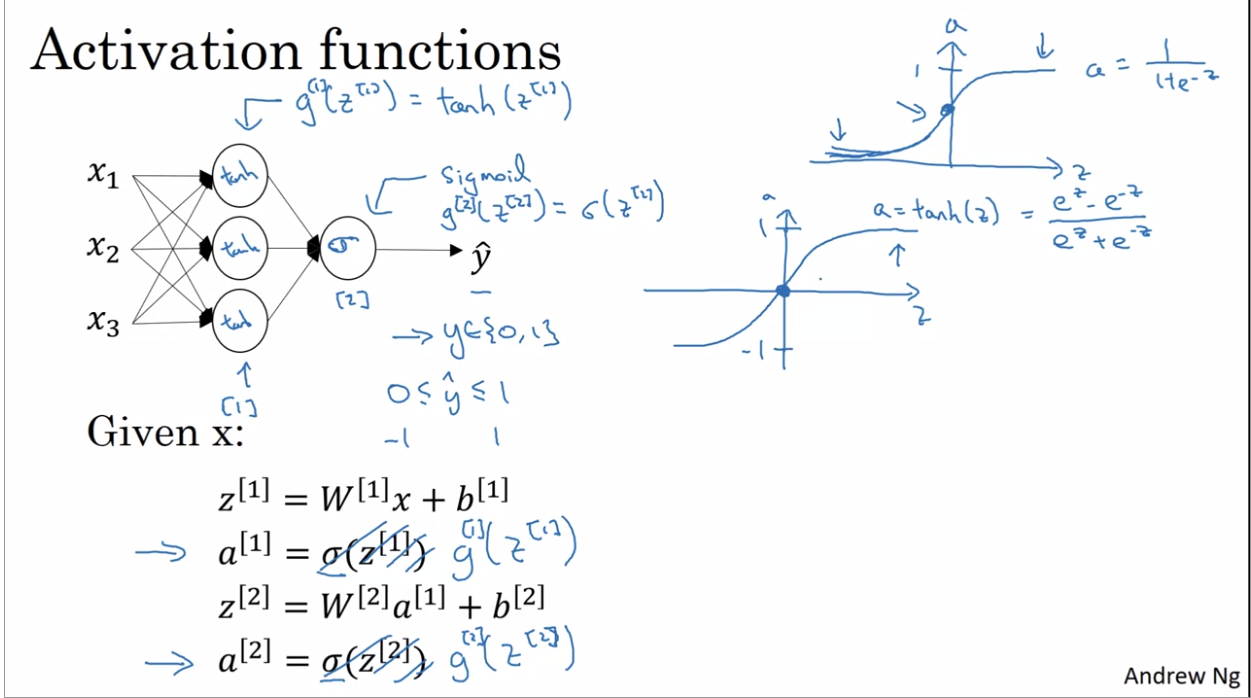 Activation functions
g^[1](z^[1]) = tanh(z^[1])
x₁
x₂
x₃
tanh
tanh
tanh
σ
[1]
[2]
Sigmoid
g^[2](z^[2]) = σ(z^[2])
ŷ
→ y∈{0,1}
0 ≤ ŷ ≤ 1
-1 1
a
1
z
a = 1/(1+e^-z)
a
1
-1
z
a = tanh(z) = (e^z - e^-z)/(e^z + e^-z)
Given x:
z^[1] = W^[1]x + b^[1]
⇒ a^[1] = σ(z^[1]) g^[1](z^[1])
z^[2] = W^[2]a^[1] + b^[2]
⇒ a^[2] = σ(z^[2]) g^[2](z^[2])
Andrew Ng